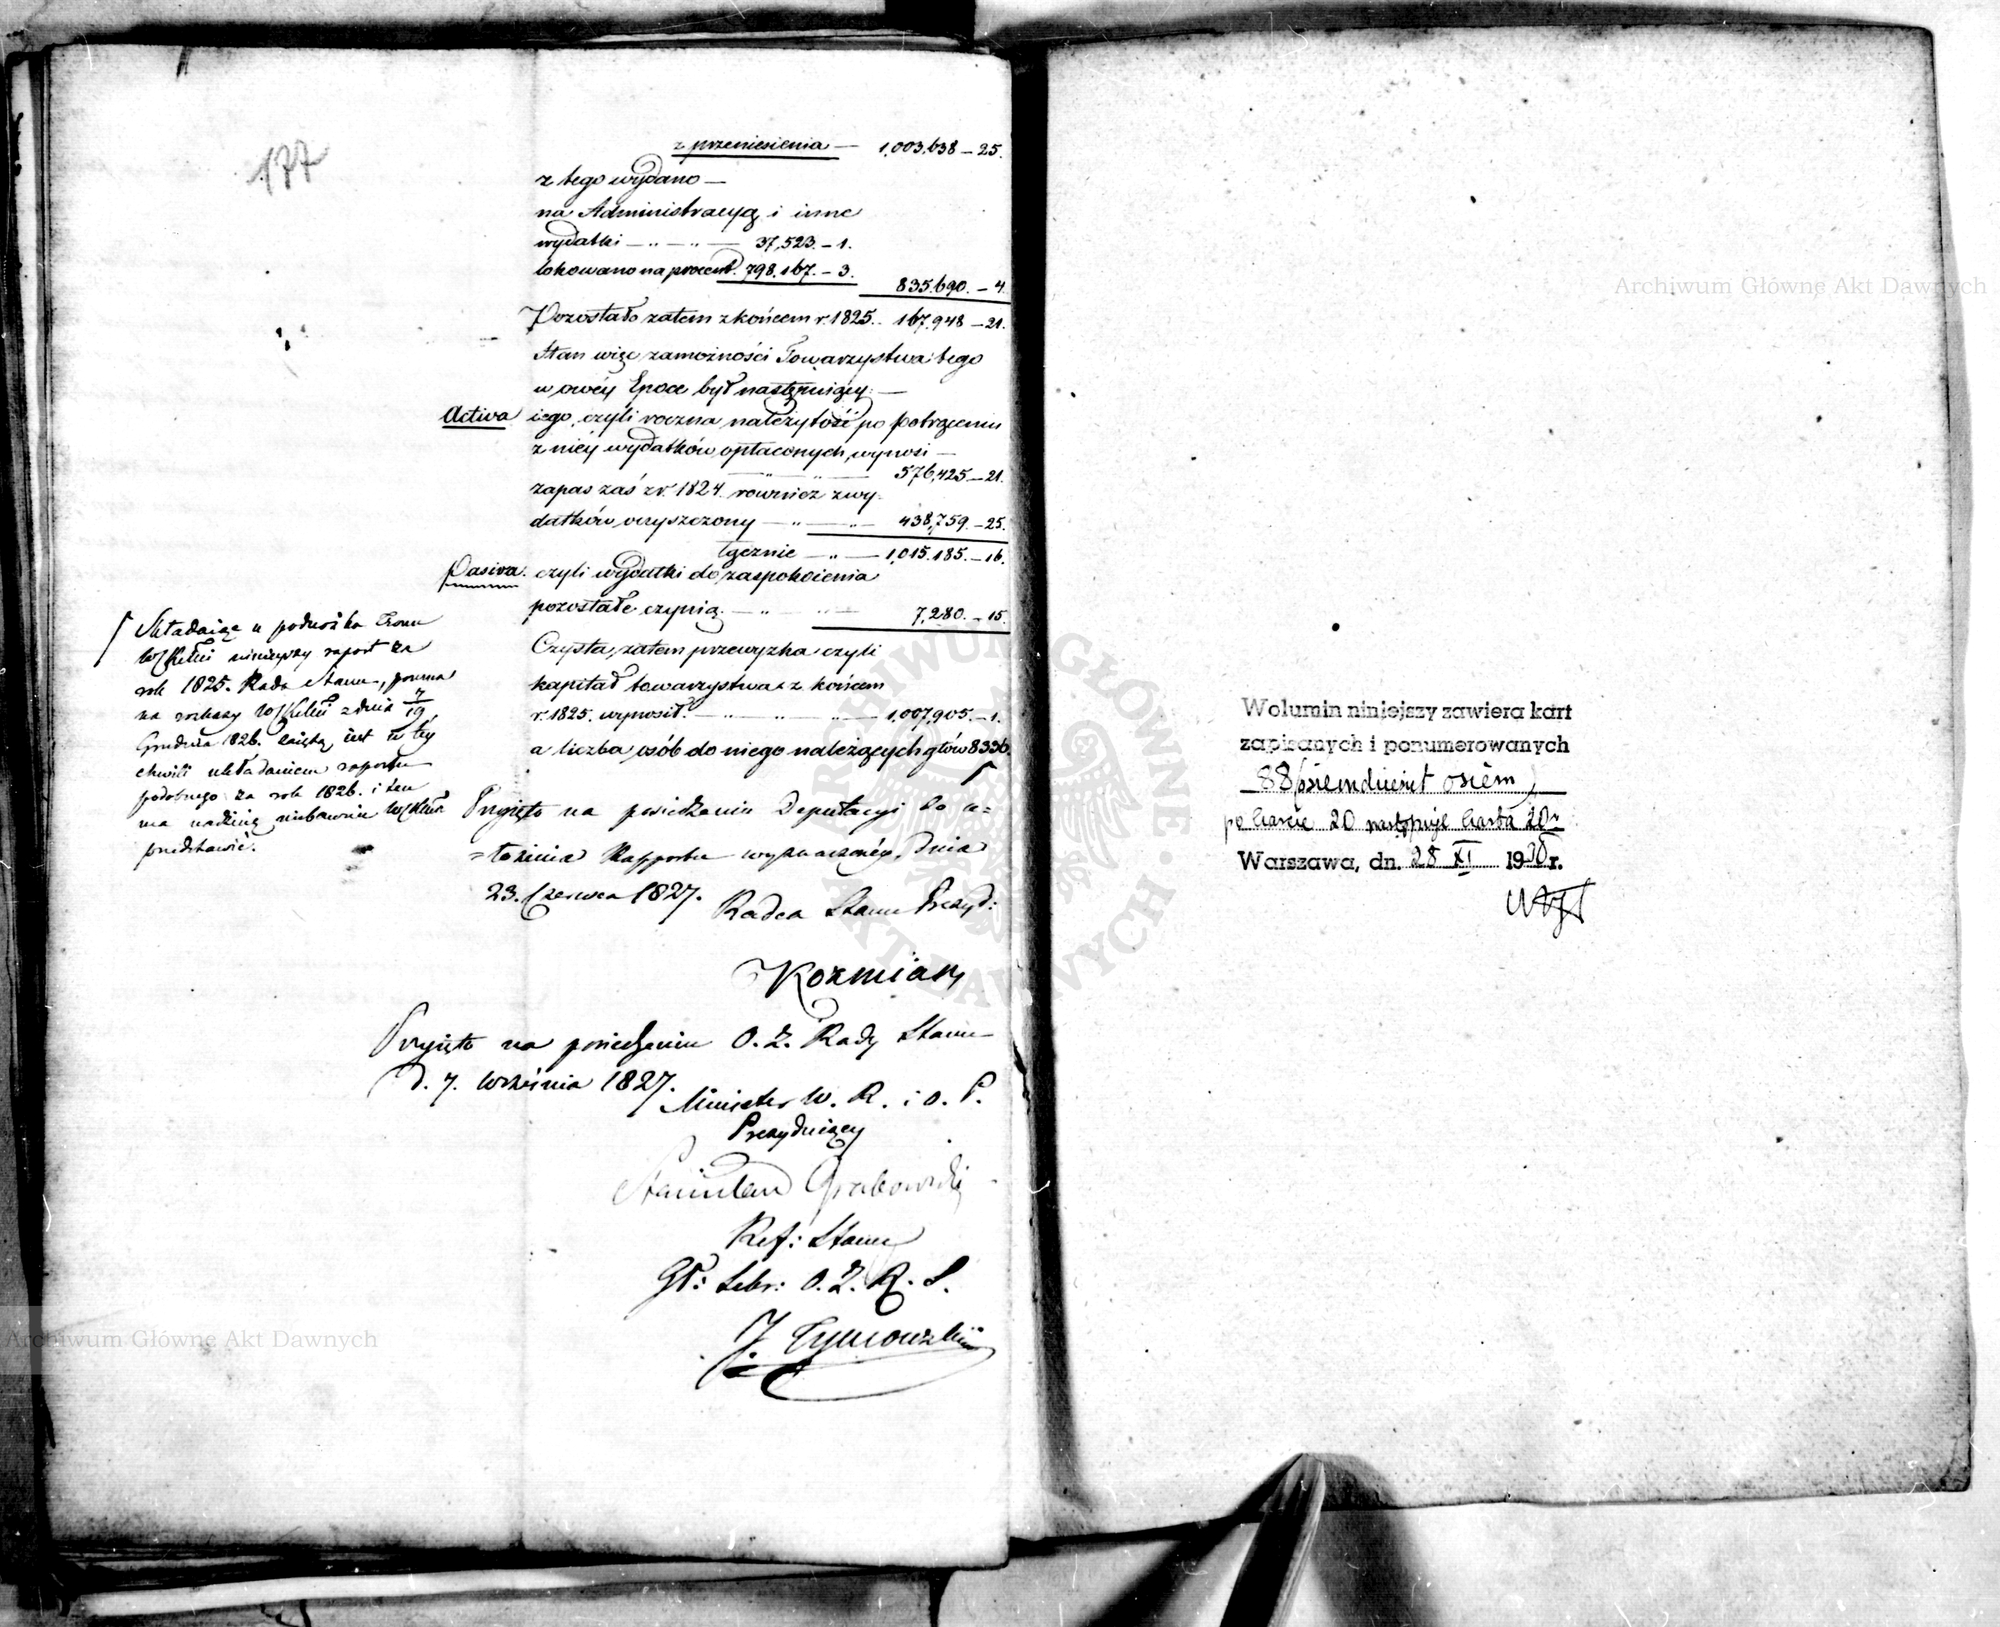 177
z przeniesienia — 1,003,638 — 25.
z tego wydano —
na Administracyą i inne
wydatki — „ — „ — 37,523. — 1.
lokowano na procent. 798.167. — 3.
835.690. — 4.
Pozostało zatem z końcem r. 1825. 167,948 — 21.
Stan więc zamożności Towarzystwa tego
w owéy Epoce był następuiący: —
Activa iego, czyli roczna należytość po potrąceniu
z niéy wydatków opłaconych, wynosi —
— „ — „ — 576,425 — 21.
zapas zaś z r. 1824. rownież z wy-
datków oczyszczony — „ — „ — 438,759. — 25.
łącznie — „ — 1,015.185. — 16.
Pasiva. czyli wydatki do zaspokoienia
pozostałe czynią. — „ — „ — 7,280. — 15.
Czysta zatem przewyżka czyli
kapitał towarzystwa z końcem
r. 1825. wynosił. — „ — „ — 1,007,905. — 1.
a liczba osób do niego należących głów 8336.
Składaiąc u podnóżka Tronu
W K Mci ninieyszy raport za
rok 1825. Rada Stanu, pomna
na rozkazy W K Mci z dnia 7/19
Grudnia 1826. zaiętą iest w téy
chwili układaniem raportu
podobnego za rok 1826. i ten
ma nadzieię niebawnie W K Mci
przedstawić.
Przyięto na posiedzeniu Deputacyi do u=
=łożenia Rapportu wyznaczonéy, dnia
23. Czerwca 1827.
Radca Stanu Prezyd:
Koźmian
Przyięto na posiedzeniu O. Z. Rady Stanu
d. 7. Września 1827.
Minister W. R. i O. P.
Prezyduiący
Stanisław Grabowski
Ref: Stanu
Gł: Sekr: O. Z. R. S.
J. Tymowski
Wolumin niniejszy zawiera kart
zapisanych i ponumerowanych
88 (osiemdziesiąt osiem)
po karcie 20 następuje karta 20a
Warszawa, dn. 28 XI 1938 r.
Archiwum Główne Akt Dawnych
Archiwum Główne Akt Dawnych
ARCHIWUM GŁÓWNE AKT DAWNYCH